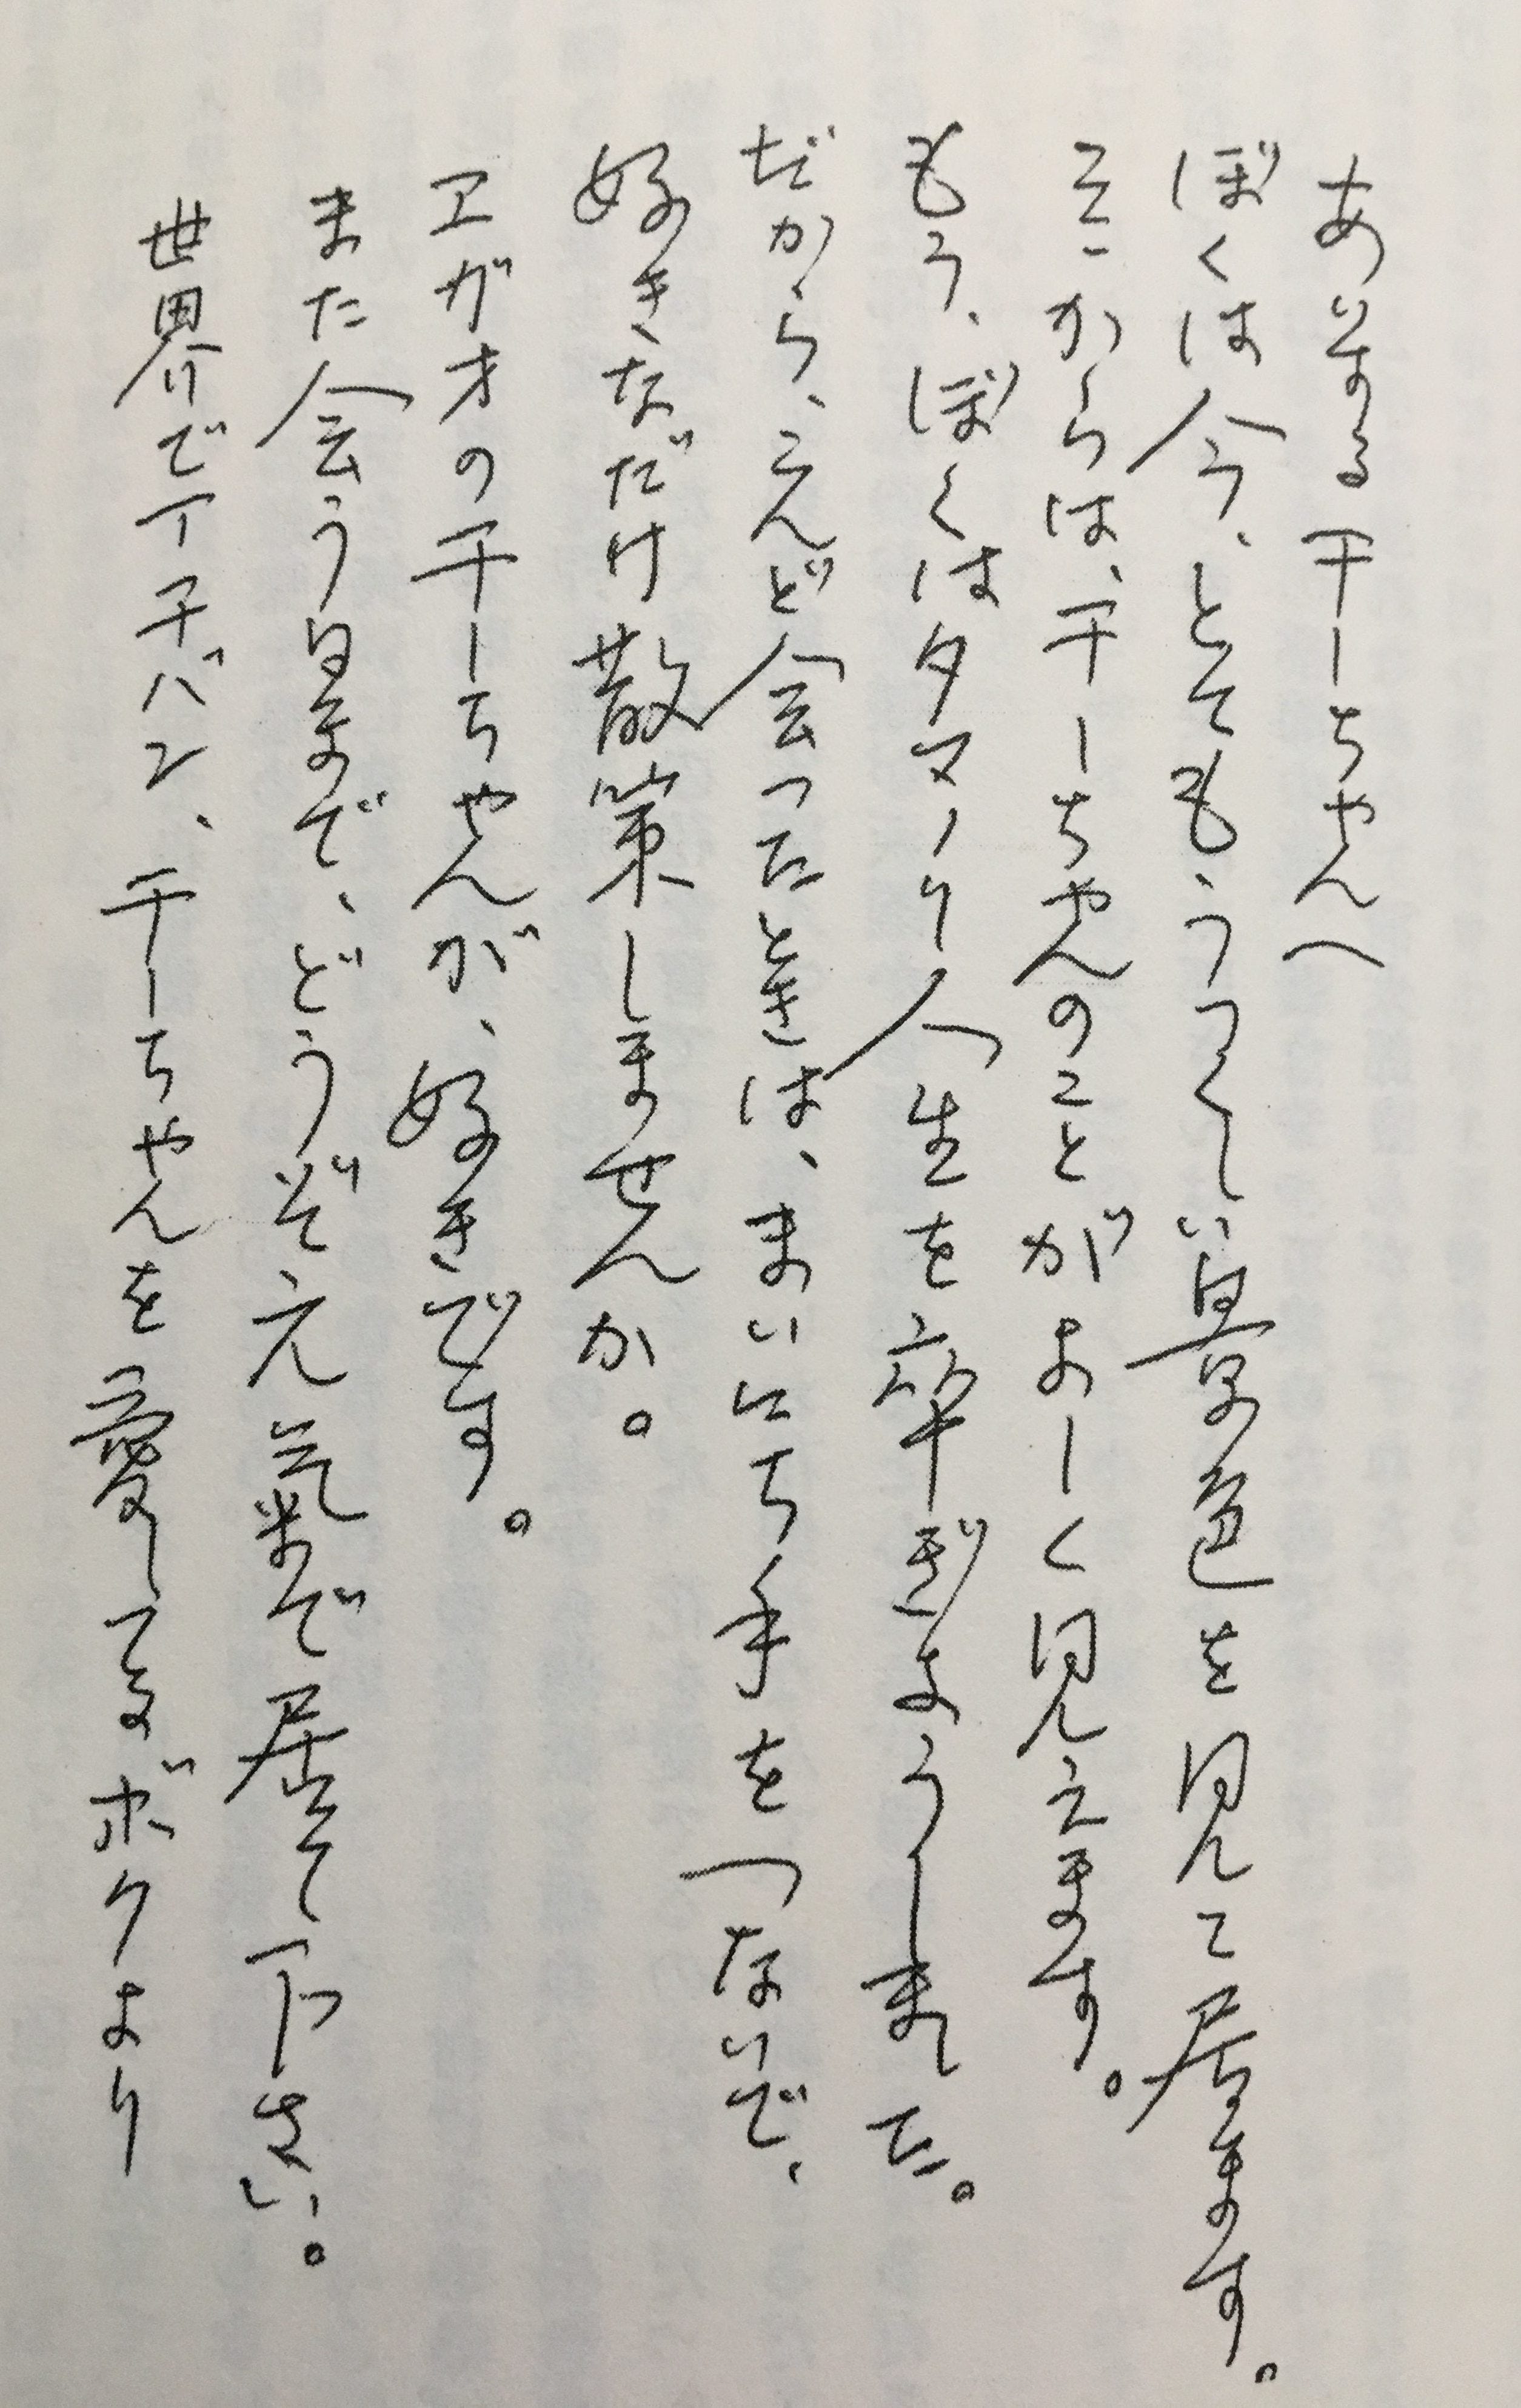 あいする干ーちゃんへ
ぼくは今、とてもうつくしい景色を見て居ます。
そこからは、干ーちゃんのことがよーく見えます。
もう、ぼくはタマノリ人生を卒ぎょうしました。
だから、こんど会ったときは、まいにち手をつないで、
好きなだけ散策しませんか。
エガオの干ーちゃんが、好きです。
また会う日まで、どうぞ元氣で居て下さい。
世界でイチバン、干ーちゃんを愛してるボクより